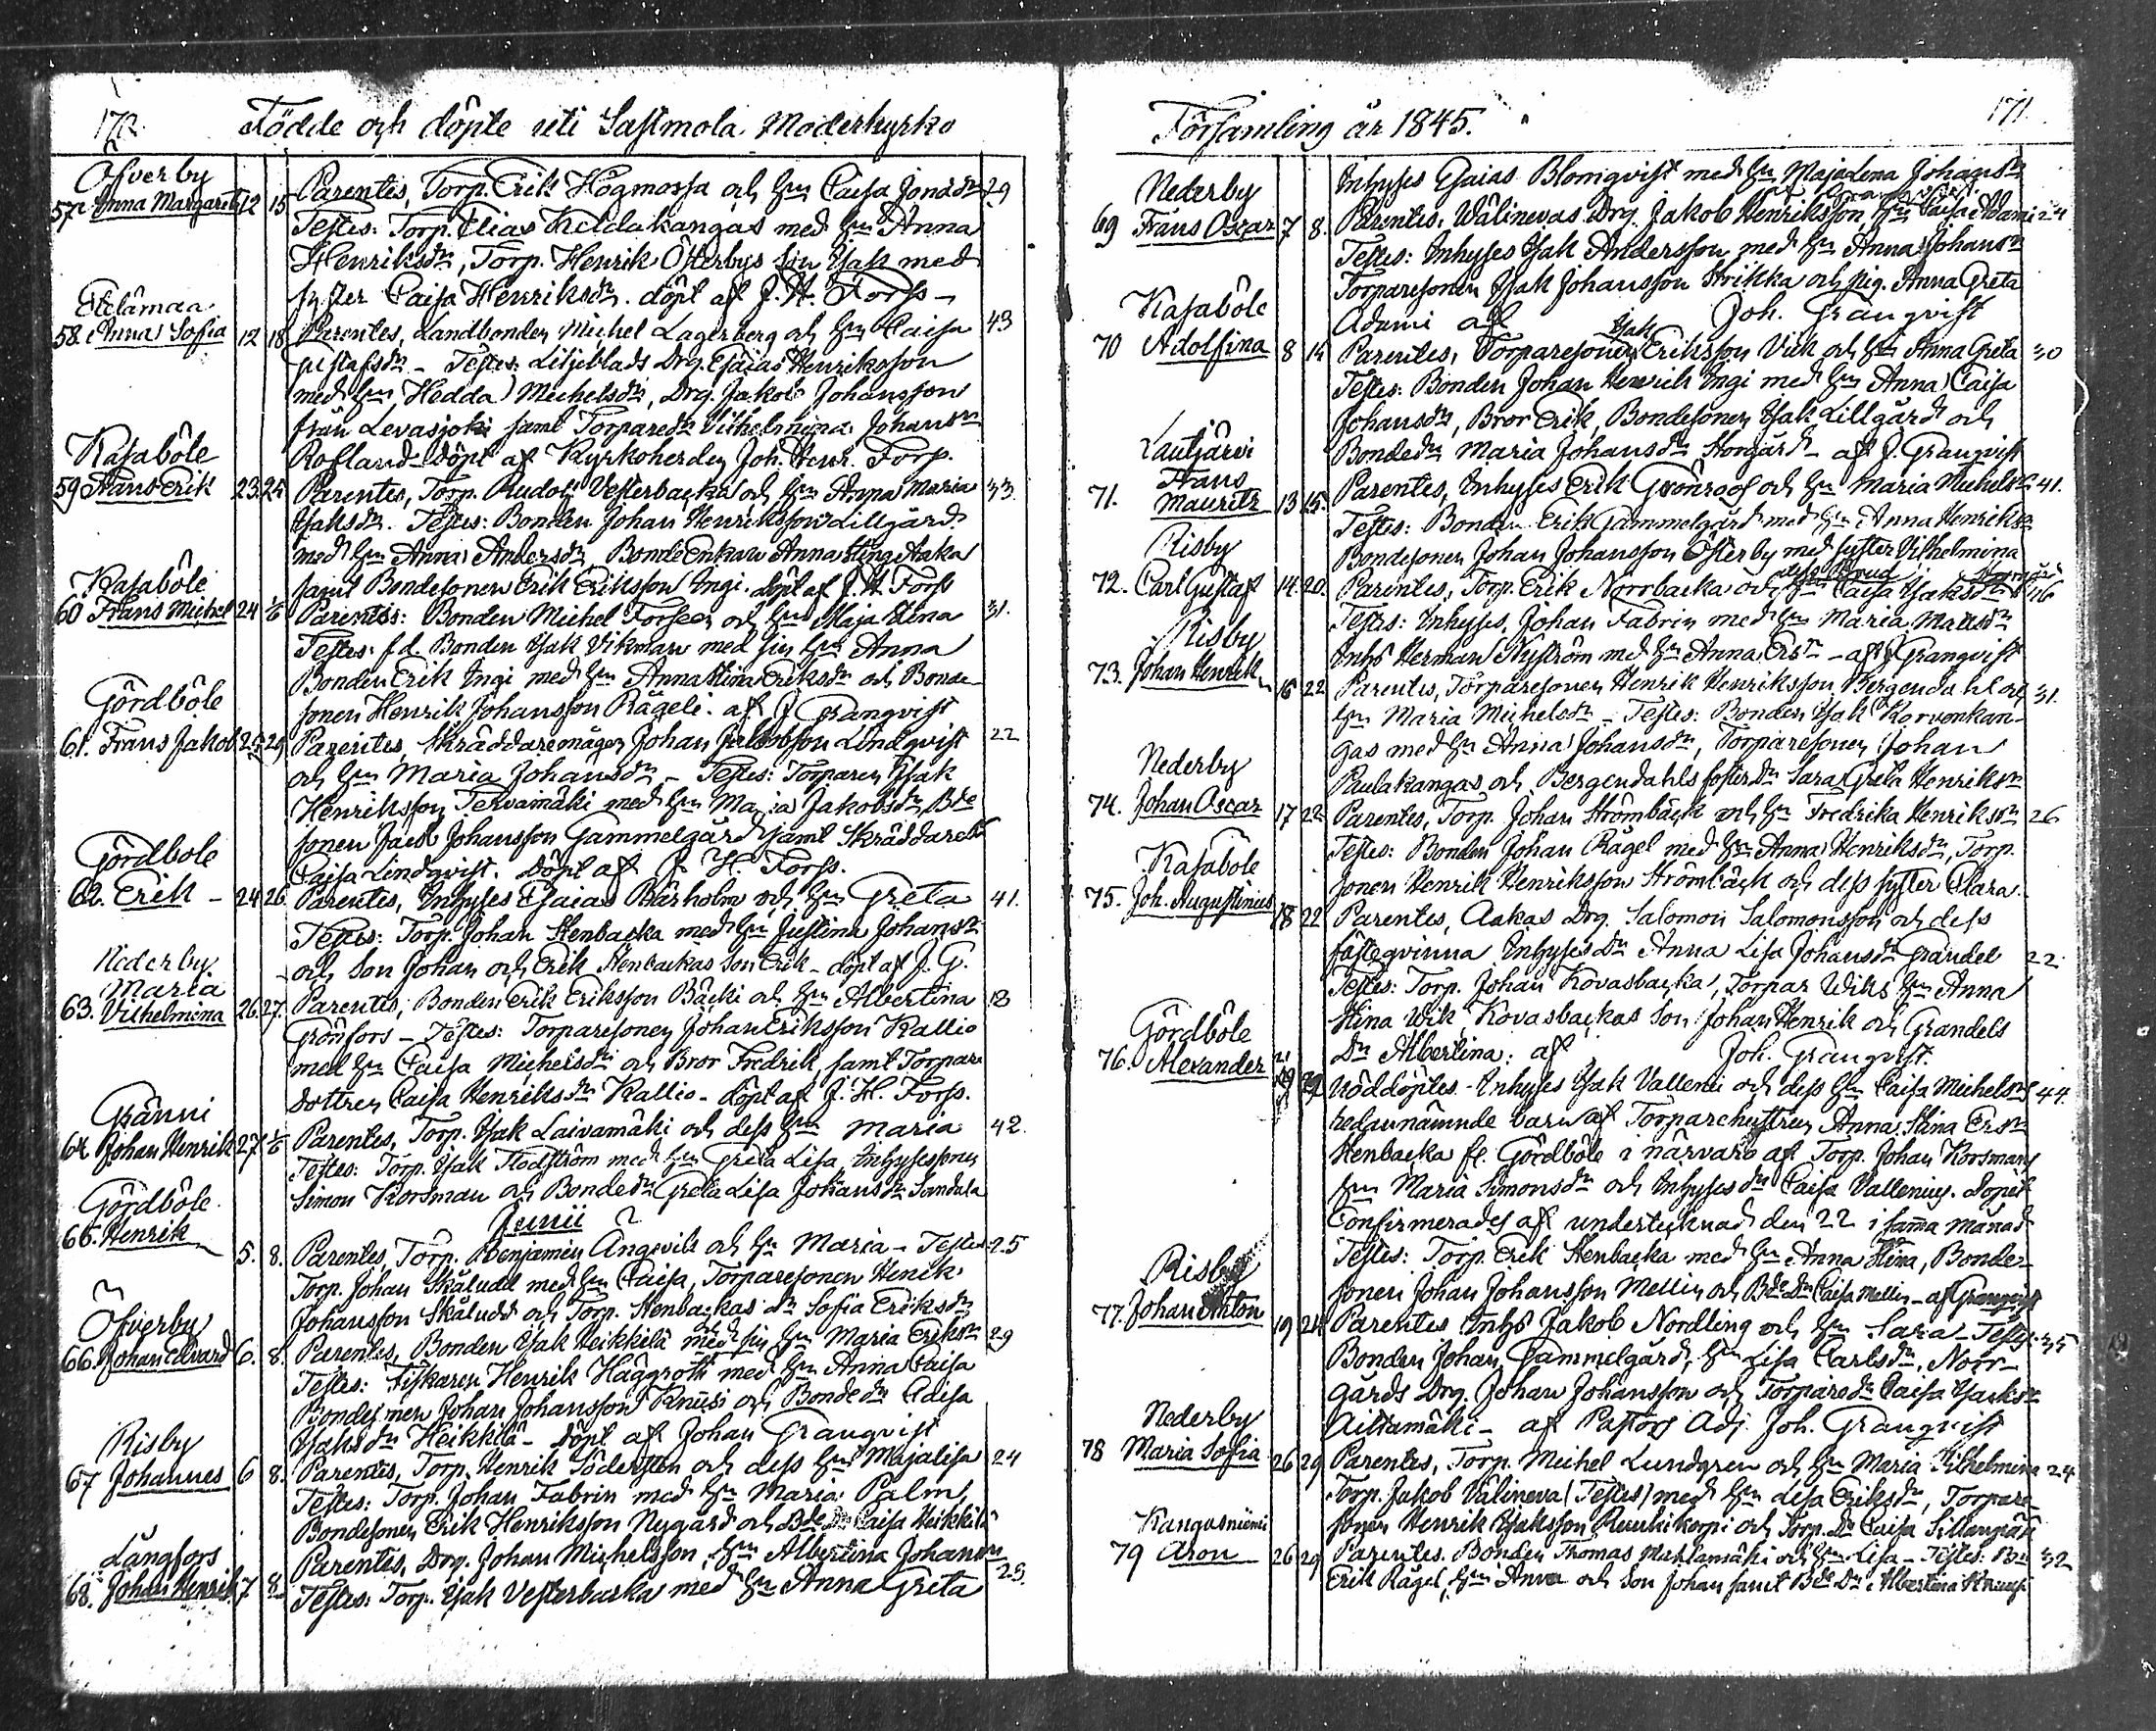 172. Födde och döpte uti Sastmola Moderkyrko
Öfverby
57. Anna Margareta 12 15 Parentes, Torp. Erik Högmossa och hu Caisa Jonasdr 29
Testes: Torp. Elias Kiddakangas med hu Anna
Henriksdr, Torp. Henrik Österbys son Isak med
syster Caisa Henriksdr. döpt af J. H. Forss
Etelämaa
58. Anna Sofia 12 18 Parentes, Landbonden Michel Lagerberg och hu Caisa 43
Gustafsdr - Testes: Liljeblads Drg. Esaias Henriksson
med hu Hedda Michelsdr, Drg. Jakob Johansson
från Levasjoki samt Torparedr Vilhelmina Johansdr
Rosland - döpt af Kyrkoherden Joh. Henr. Forss.
Kasaböle
59 Frans Erik 23 25 Parentes, Torp. Rudolf Vesterbacka och hu Anna Maria 33.
Isaksdr. Testes: Bonden Johan Henriksson Lillgård
med hu Anna Andersdr, Bonde Enkan Anna Stina Aaka
samt Bondesonen Erik Eriksson Ingi. döpt af J. H. Forss
Kasaböle
60 Frans Michel 24 1/6 Parentes: Bonden Michel Forssen och hu Maja Stina 31.
Testes: f.d. Bonden Isak Vikman med sin hu Anna
Bonden Erik Ingi med hu Anna Stina Eriksdr och Bonde-
sonen Henrik Johansson Rägeli. af J Granqvist
Gördböle
61. Frans Jakob 25 29 Parentes, Skräddaremågen Johan Jakobsson Lindqvist 22
och hu Maria Johansdr - Testes: Torparen Isak
Henriksson Tervamäki med hu Maria Jakobsdr, Bde
sonen Jacob Johansson Gammelgård samt Skräddaredr
Caisa Lindqvist. Döpt af J. H. Forss.
Gördböle
62. Erik - 24 26. Parentes, Inhyses Esaias Bärholm och hu Greta 41.
Testes: Torp. Johan Stenbacka med hu Justina Johansdr
och Son Johan och Erik Stenbackas Son Erik - döpt af J. G.
Nederby
Maria
63. Vilhelmina 26. 27. Parentes, Bonden Erik Eriksson Bäcki och hu Albertina 18
Grönfors - Testes: Torparesonen Johan Eriksson Kallio
med hu Caisa Michelsdr och Bror Fredrik, samt Torpare
dottren Caisa Henriksdr Kallio - döpt af J. H. Forss.
Gränni
64 Johan Henrik 27 1/6 Parentes, Torp. Isak Laivamäki och dess hu Maria 42.
Testes: Torp. Isak Flodström med hu Greta Lisa, Inhysessonen
Simon Korsman och Bondedr Greta Lisa Johansdr Sandala
Junii
Gördböle
65. Henrik 5. 8. Parentes, Torp. Benjamin Ångevik och hu Maria - Testes 25
Torp. Johan Skäludd med hu Caisa, Torparesonen Henrik
Johansson Skäludd och Torp. Stenbackas dr Sofia Eriksdr
Öfverby
66. Johan Edvard 6. 8. Parentes, Bonden Isak Heikkilä och sin hu Maria Eriksdr 29
Testes: Fiskaren Henrik Häggroth med hu Anna Caisa
Bondesonen Johan Johansson Knuusi och Bondedr Adisa
Isaksdr Heikkilä - döpt af Johan Granqvist
Risby
67 Johannes 6 8. Parentes, Torp. Henrik Södersten och dess hu Majalisa 24
Testes: Torp. Johan Fabrin med hu Maria Palm,
Bondesonen Erik Henriksson Nygård och Bde Dr Caisa Heikkilä
Långfors
68. Johan Henrik 7 8 Parentes, Drg. Johan Michelsson, hu Albertina Johansdr 25.
Testes: Torp. Isak Vesterbacka med hu Anna Greta
Församling år 1845. 171.
Inhyses Esaias Blomqvist med hu Majalena Johansdr
Nederby
69 Frans Oscar 7 8. Parentes, Wälinevas Drg. Jakob Henriksson, hu Caisa Adami 24
Testes: Inhyses Isak Andersson med hu Anna Johansdr
Torparesonen Isak Johansson Strikka och pig. Anna Greta
Adami af Joh. Granqvist
Kasaböle
70 Adolfina 8 14 Parentes, Torparesonen Isak Eriksson Vik och hu Anna Greta 30
Testes: Bonden Johan Henrich Ingi med hu Anna Caisa
Johansdr, Bror Erik, Bondesonen Isak Lillgård och
Bondedr Maria Johansdr Storgård - af J. Granqvist
Lautjärvi
Frans
71. Mauritz 13 15. Parentes, Inhyses Erik Grönroos och hu Maria Michelsdr 41.
Testes: Bonden Erik Gammelgård med hu Anna Henriksdr
Bondesonen Johan Johansson Österby med syster Vilhelmina
Risby
72. Carl Gustaf 14. 20. Parentes, Torp. Erik Norrbacka och dess Caisa Isaksdr
Testes: Inhyses, Johan Fabrin med hu Maria Mattsdr
Inhs Herman Nyström med hu Anna Ersdr - af J Granqvist
Risby
73. Johan Henrik 16 22 Parentes, Torparesonen Henrik Henriksson Bergendahl och 31.
hu Maria Michelsdr - Testes: Bonden Isak Korvenkan-
gas med hu Anna Johansdr, Torparesonen Johan
Paulakangas och Bergendahls fosterdr Sara Greta Henriksdr
Nederby
74. Johan Oscar 17 22 Parentes, Torp. Johan Strömbäck och hu Fredrika Henriksdr 26
Testes: Bonden Johan Rägel med hu Anna Henriksdr, Torp.
sonen Henrik Henriksson Strömbäck och dess syster Clara.
Kasaböle
75. Joh. Augustinus 18 22 Parentes, Aakas Drg. Salomon Salomonsson och dess
fästeqvinna Inhysesdr Anna Lisa Johansdr Grandel 22.
Testes: Torp. Johan Kovasbacka, Torpar Wiks hu Anna
Stina Wik, Kovasbackas Son Johan Henrik och Grandels
Dr Albertina: af Joh. Granqvist.
Gördböle
76. Alexander 21 29 Nöddöptes - Inhyses Isak Vallenii och dess hu Caisa Michelsdrs 44.
redannämnde barn af Torparehustrun Anna Stina Ersdr
Stenbacka fr. Gördböle i närvaro af Torp. Johan Korsmans
hu Maria Simonsdr och Inhysesdr Caisa Vallenius. Dopet
Confirmerades af undertecknad den 22 i samma månad
Testes: Torp. Erik Stenbacka med hu Anna Stina, Bonde-
sonen Johan Johansson Mellin och Bde Dr Caisa Mellin - af Granqvist
Risby
77. Johan Anton 19 24 Parentes Inhs Jakob Nordling och hu Sara - Testes: 35
Bonden Johan Gammelgård, hu Lisa Carlsdr, Norr-
gårds Drg. Johan Johansson och Torparedr Caisa Isaksdr
Aittamäki - af Pastors Adj. Joh. Granqvist
Nederby
78 Maria Sofia 26 29 Parentes, Torp. Michel Lundgren och hu Maria Vilhelmina 24
Torp. Jakob Välineva (Testes) med hu Lisa Eriksdr, Torpare-
sonen Henrik Isaksson Ruuhikorpi och Torp. Dr Caisa Sillanpää
Kangasniemi
79 Aron 26 29 Parentes. Bonden Thomas Mahlamäki och hu Lisa - Testes: Bn 32
Erik Rägel, hu Anna och Son Johan samt Bde Dr Albertina Knuusi